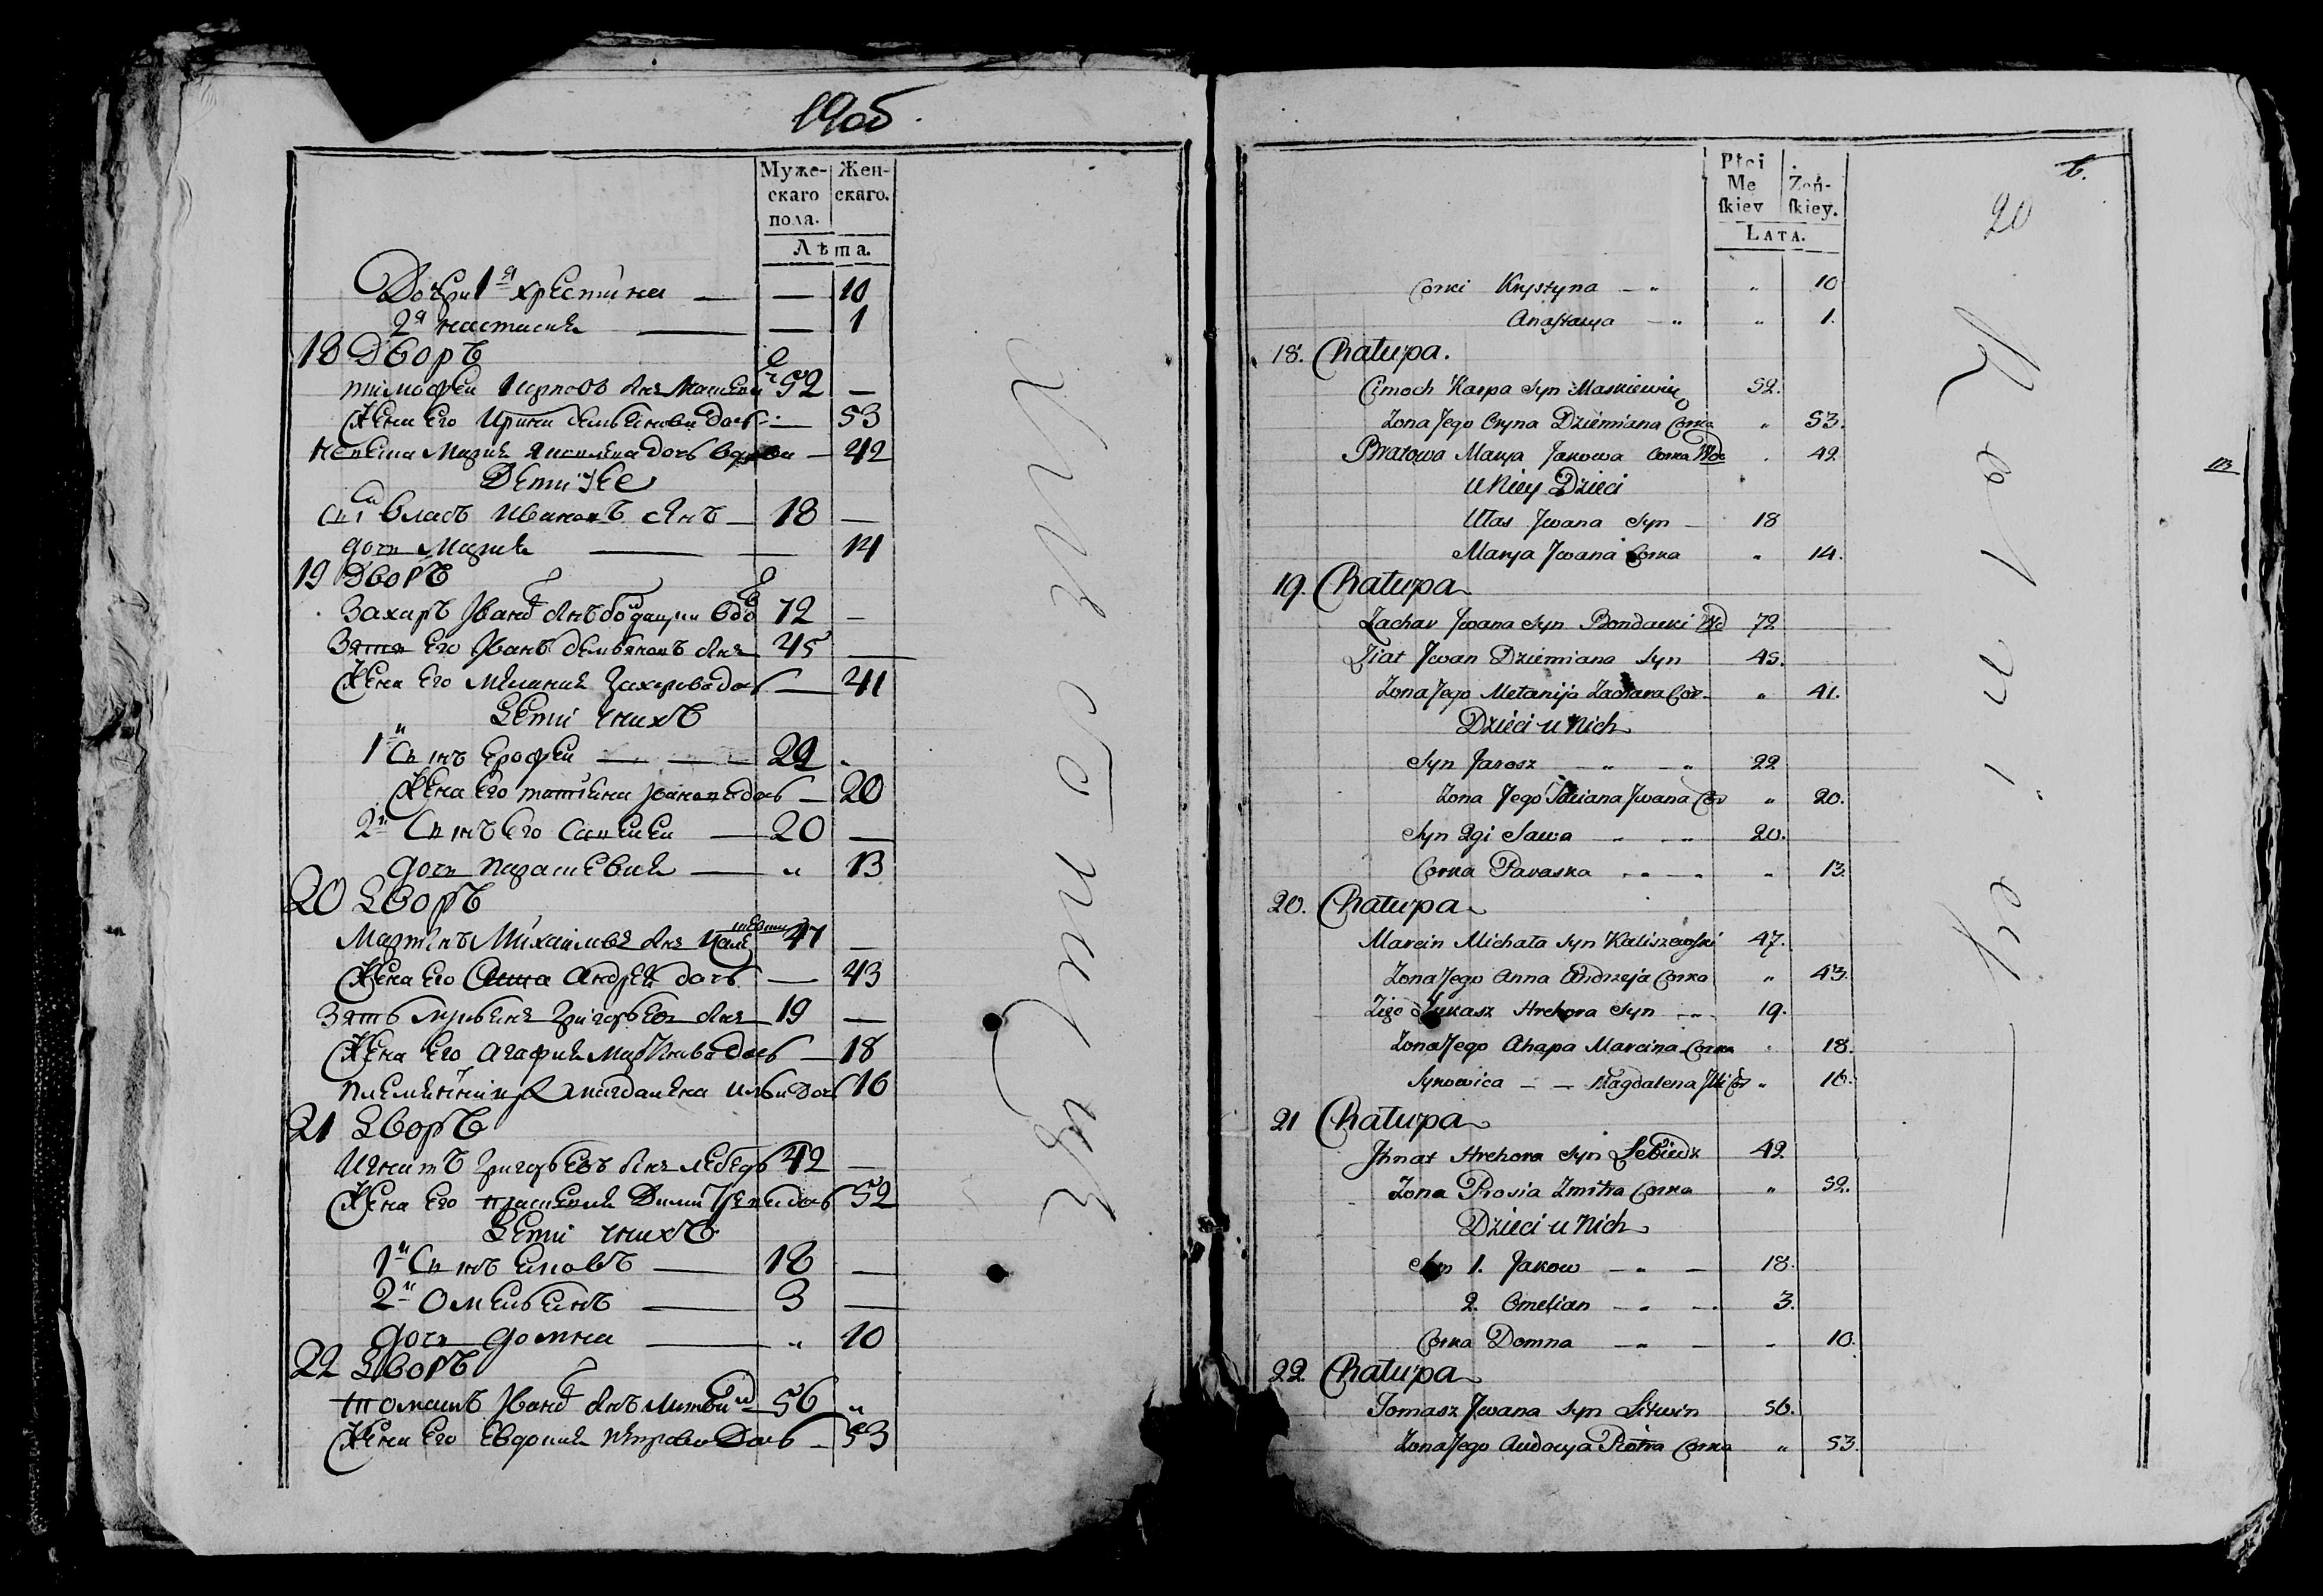 19об.
Муже- Жен-
скаго скаго.
пола.
Лѣта.
Дочери 1я христина — — 10
2я настасия — — 1
18 Дворъ
тимофей карповъ сынъ 52 —
Жена его Ирина демьянова дочь — 53
Марья дочь вдова — 42
Дети у Ее
Сн 1й власъ Ивановъ сынъ — 18 —
дочь Мария — 14
19 Дворъ
Захаръ Иванов сынъ бондацки вдов 72 —
Зять Его Иванъ демьяновъ сынъ 45 —
Жена его Мелания Захарова дочь — 41
Дети у нихъ
1й Сынъ Ерофей — 22
Жена Его татияна Иванова дочь — 20
2й Сынъ Его Савелей — 20 —
дочь парасковия — „ 13
20 Дворъ
Мартинъ Михайловъ сынъ 47 —
Жена Его Анна Андрея дочь — 43
Зять лукьянъ Григорьевъ сынъ 19 —
Жена Его Агафия Мартинова дочь — 18
Племянница магдалена Ильи дочь 16
21 Дворъ
Игнатъ Григорьевъ сынъ лебедь 42 —
Жена Его дочь 52
Дети у нихъ
1й Сынъ Яковъ — 18 —
2й Омельянъ — 3 —
дочь домна — „ 10
22 Дворъ
томашъ Иванов сынъ литвин 56 „
Жена Его Евдокия петрова дочь — 53
Płci
Mę Żeń-
ſkiey ſkiey.
LATA.
20
Corki Krystyna — „ „ 10
Anastazya — „ „ 1.
18. Chałupa.
Cimoch Karpa Syn Maskiewicz 52.
Zona Jego Oryna Dziemiana Corka „ 53.
Bratowa Marya Jakowa Corka Wdo . 42
u Niey Dzieci
Ułas Jwana Syn — 18
Marya Jwana Corka „ 14.
19. Chałupa
Zachar Jwana Syn Bondacki Wd 72
Ziat Jwan Dziemiana Syn 45.
Zona Jego Mełanija Zachara Cor. „ 41.
Dzieci u Nich
Syn Jarosz — „ — „ 22
Zona Jego Taciana Jwana Cor „ 20.
Syn 2gi Sawa — „ — „ 20.
Corka Paraska „ „ — „ „ 13.
20. Chałupa
Marcin Michała Syn Kaliszewski 47.
Zona Jego Anna Andrzeja Corka „ 43.
Zięć Łukasz Hrehora Syn — „ — 19.
Zona Jego Ahapa Marcina Corka „ 18.
Synowica — — Magdalena Jlii Cor „ 16.
21 Chałupa
Jhnat Hrehora Syn Lebiedz 42
Zona Prosia Zmitra Corka „ 52.
Dzieci u Nich
Syn 1. Jakow — „ — 18.
2. Omelian — „ — 3.
Corka Domna — „ — 10.
22. Chałupa
Tomasz Jwana Syn Litwin 56.
Zona Jego Audocya Piotra Corka „ 53.